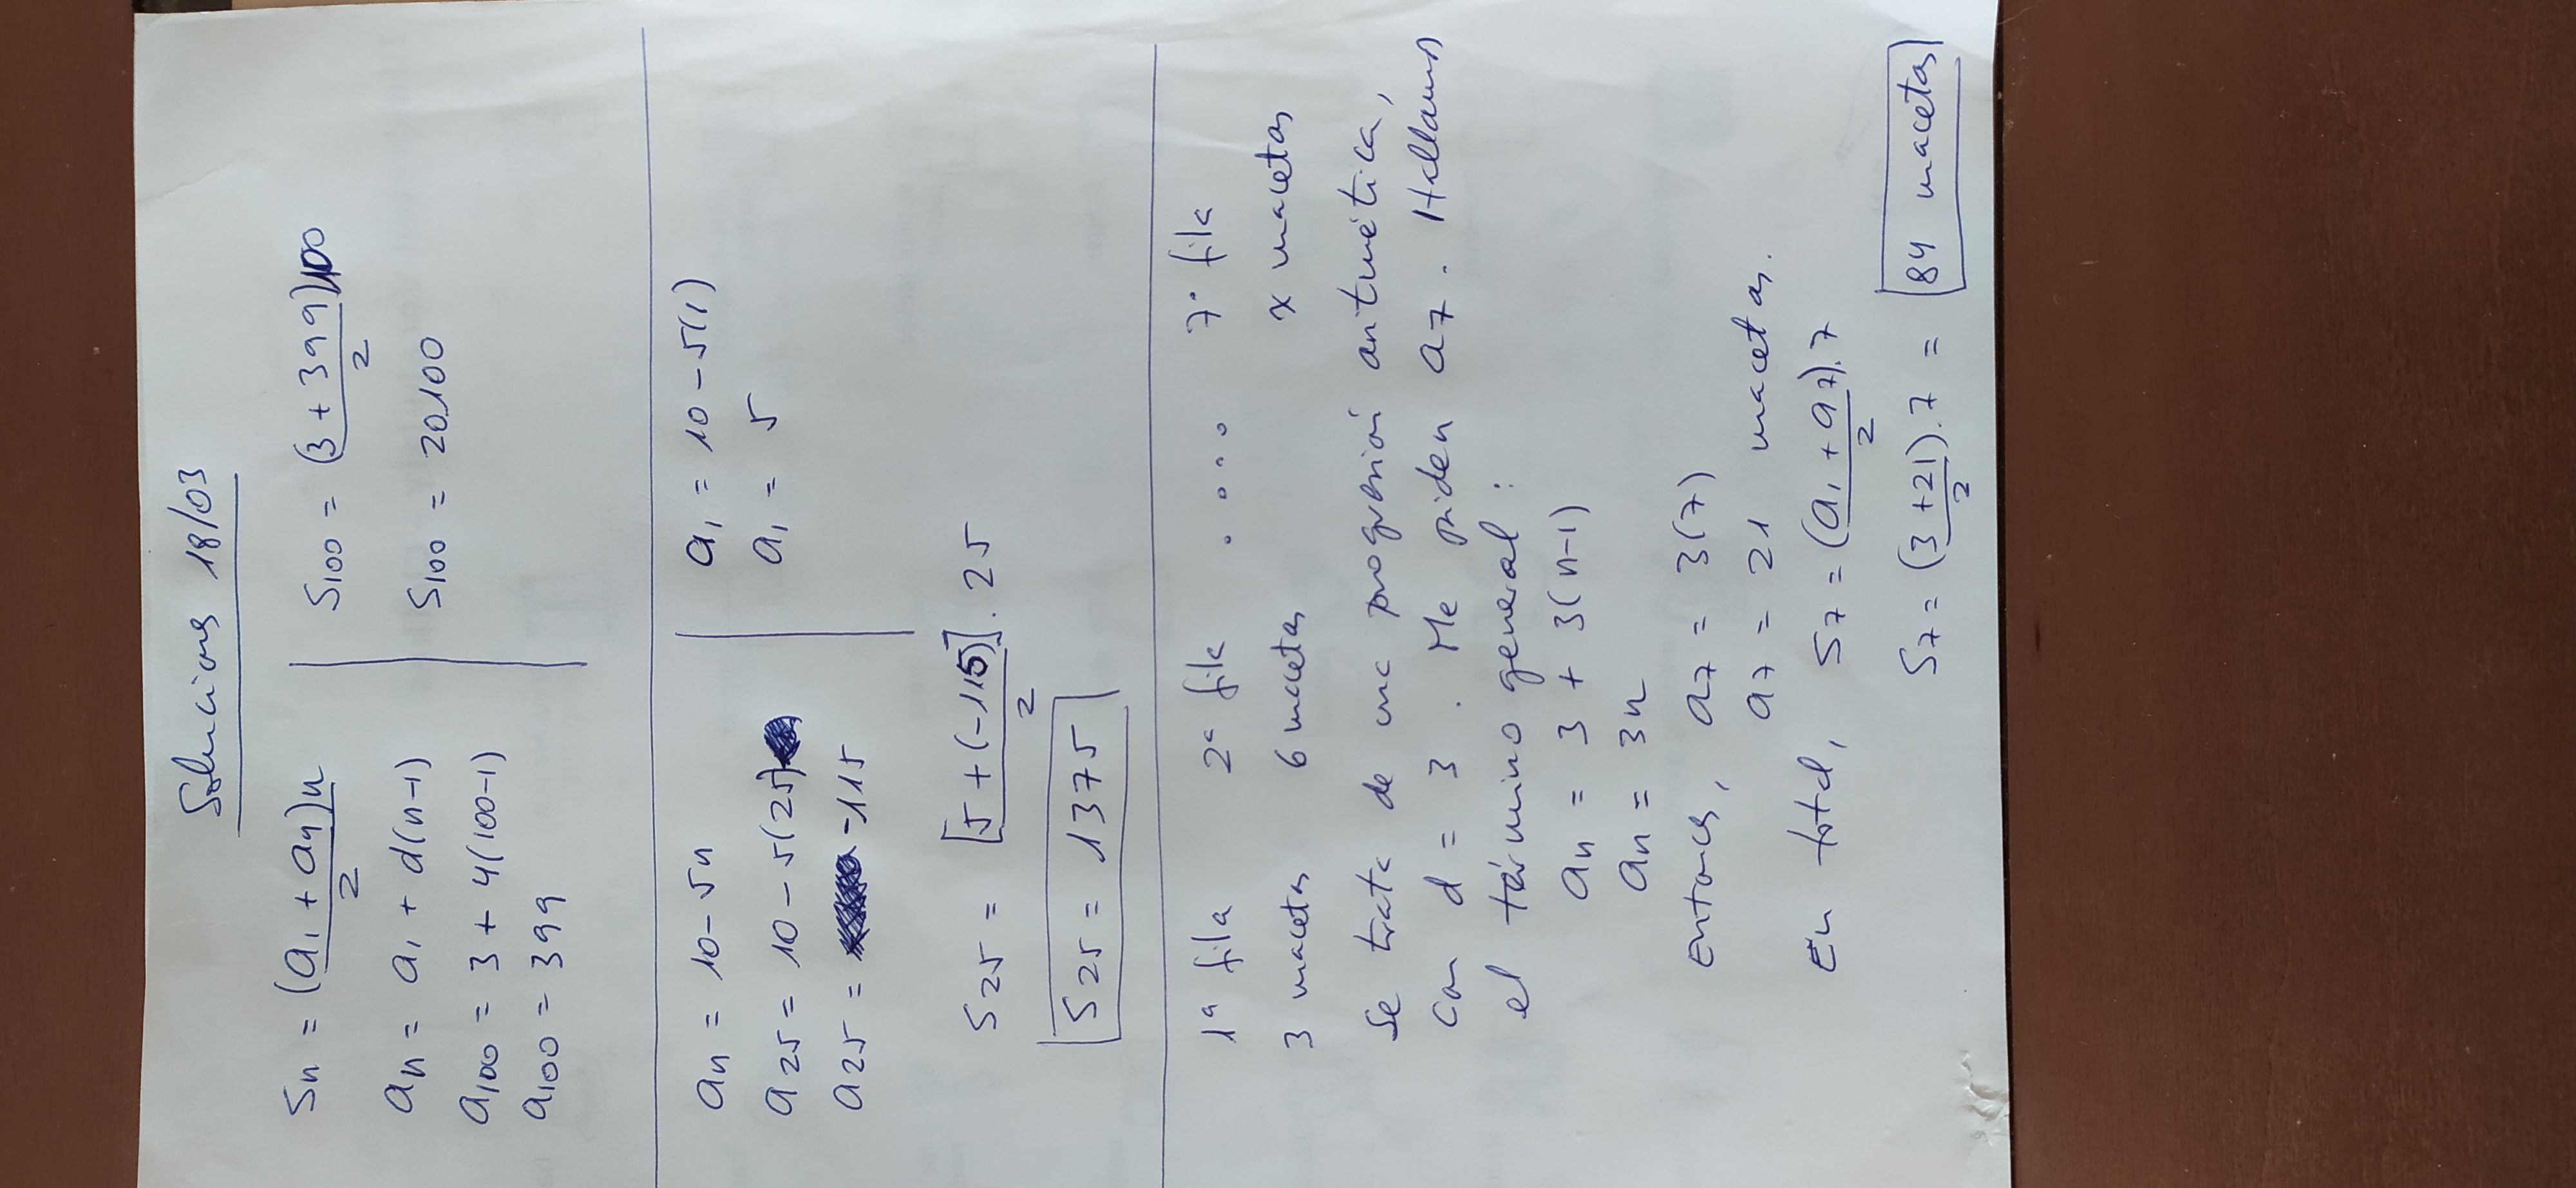 Soluciones 18/03
Sn = (a1 + an)n / 2
an = a1 + d(n-1)
a100 = 3 + 4(100-1)
a100 = 399
S100 = (3 + 399)100 / 2
S100 = 20100
an = 10 - 5n
a25 = 10 - 5(25)
a25 = -115
a1 = 10 - 5(1)
a1 = 5
S25 = [5 + (-115)] . 25 / 2
S25 = 1375
1ª fila 2ª fila .... 7ª fila
3 macetas 6 macetas x macetas
Se trata de una progresión aritmética,
con d = 3. Me piden a7. Hallamos
el término general:
an = 3 + 3(n-1)
an = 3n
Entonces, a7 = 3(7)
a7 = 21 macetas.
En total, S7 = (a1 + a7).7 / 2
S7 = (3+21).7 / 2 = 84 macetas